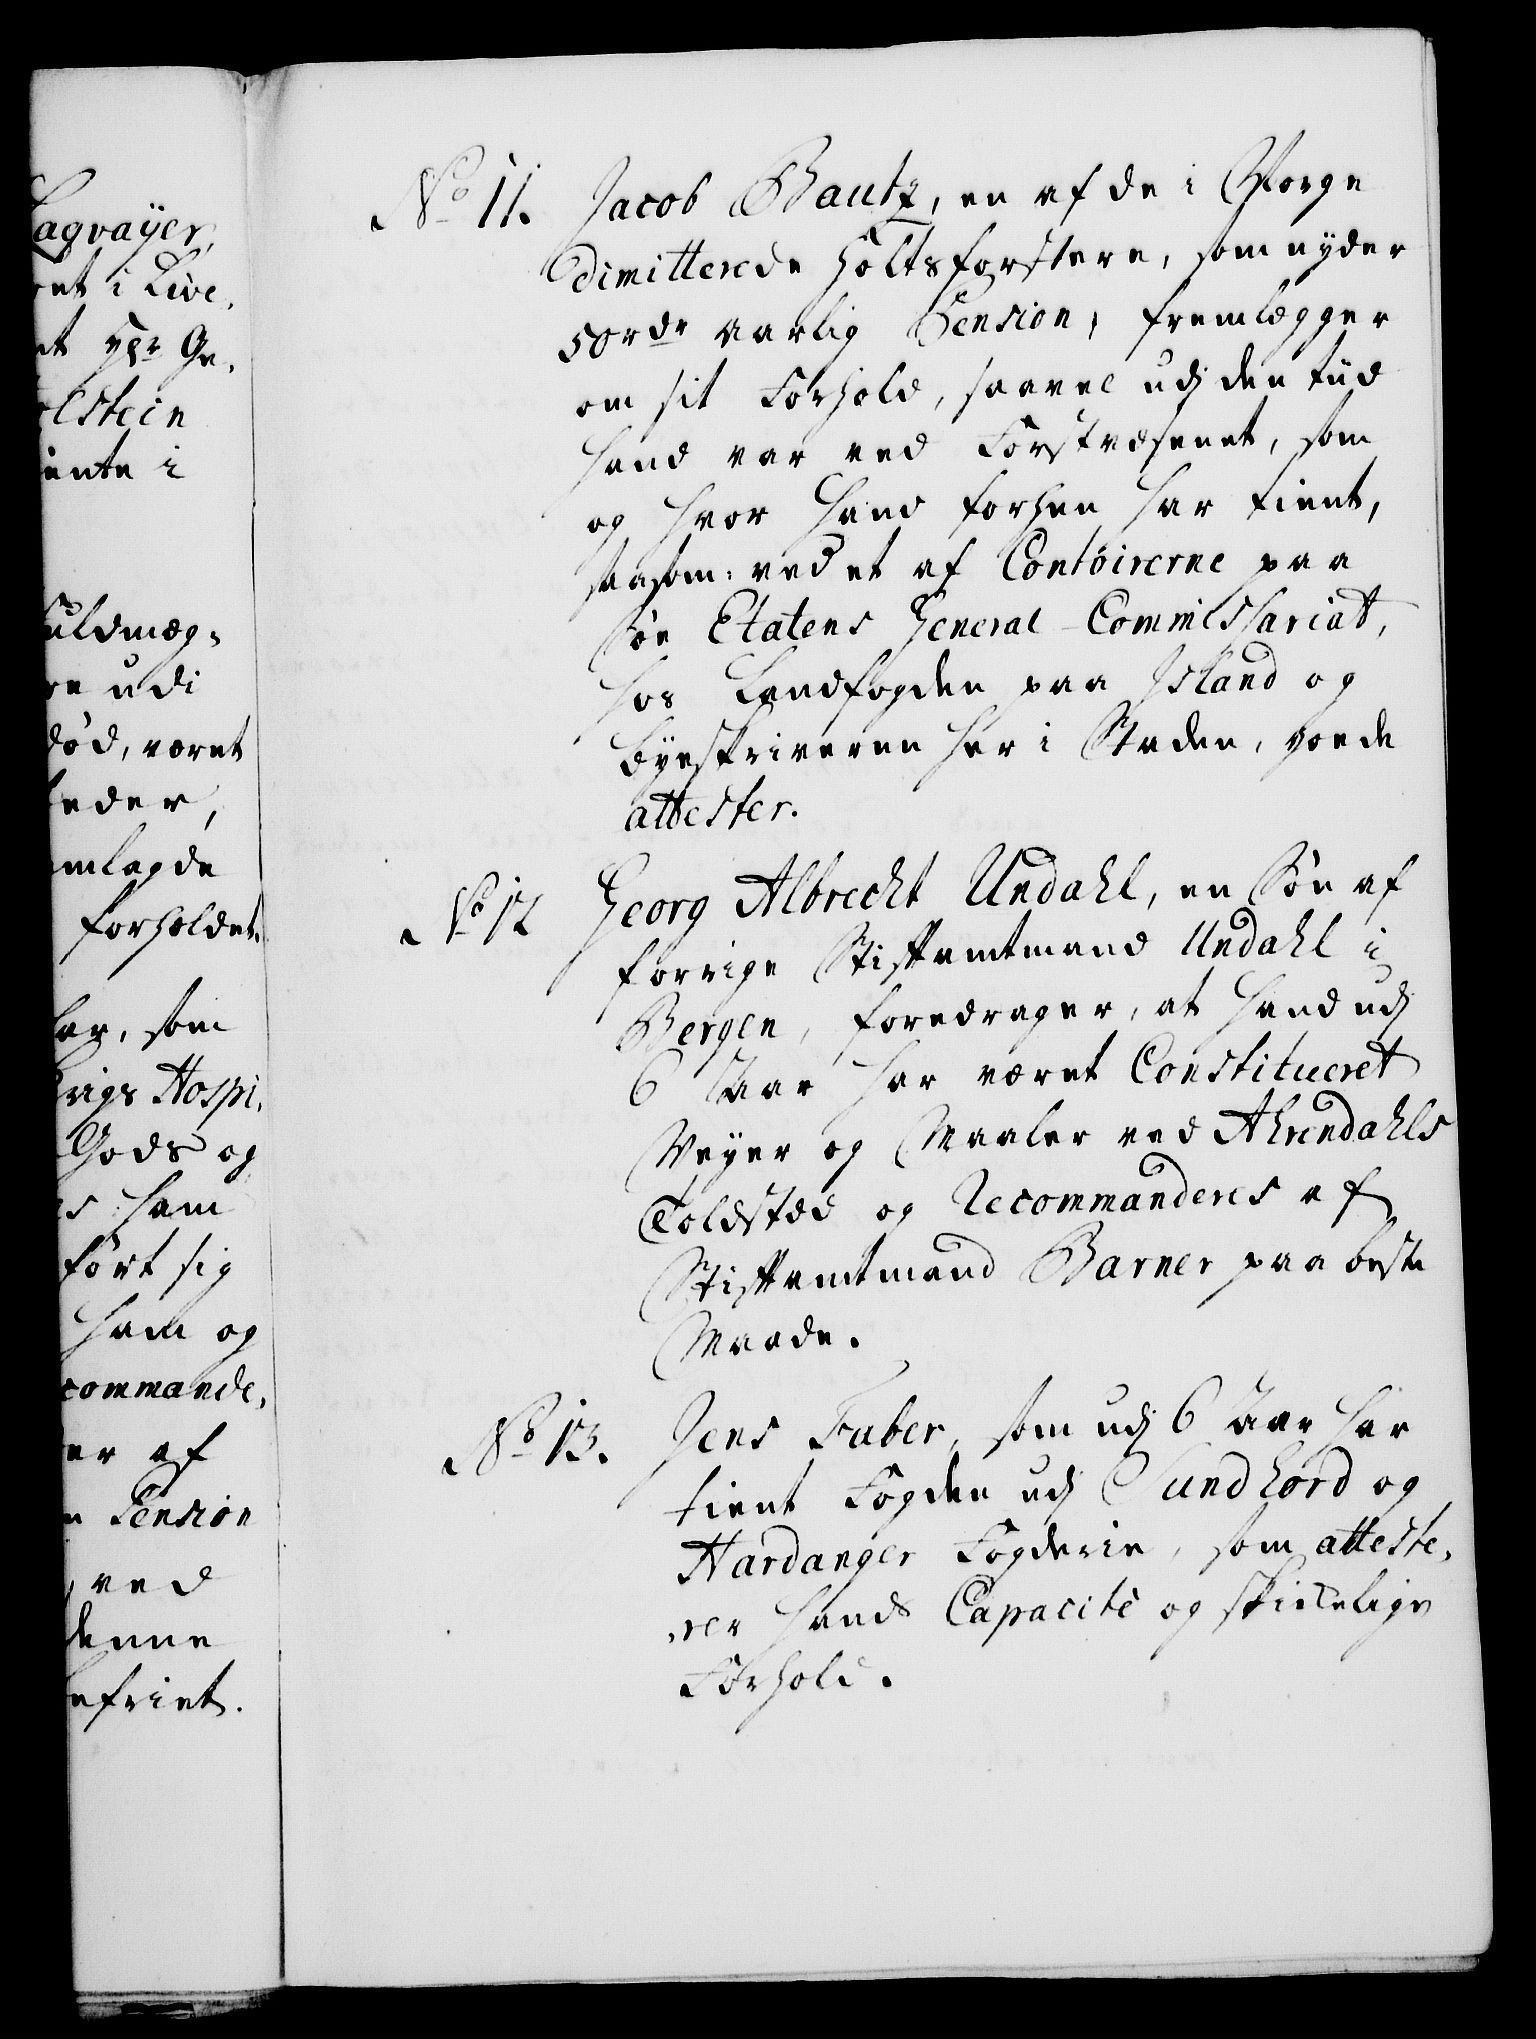 Lagvaÿer,
ret i Live,
et 4de Ge,
olstein
iente i
uldmæg,
re udi
död, været
eder,
emlagde
forholdet.
lar, som
rigs Hospi,
Gods og
es ham
fört sig
ham og
commande,
er af
n Pension
ved
denne
befriet.
No 11. Jacob Bautz, en af de i Norge
dimitterede Holtsforstere, som nyder
50 rdr aarlig Pension, fremlegger
om sit Forhold, saavel udj den tiid
hand var ved Forstvæsenet, som
og hvor hand forhen har tient,
saasom: ved et af Contoirerne paa
Söe Etatens General-Commissariat,
hos Landfogden paa Island og
Byeskriveren her i Staden, goede
attester.
No 12 Georg Albrecht Undahl, en Sön af
forrige Stiftamtmand Undahl i
Bergen, foredrager, at hand udj
6 Aar har været Constitueret
Veyer og Maaler ved Ahrendahls
Toldsted og Recommanderes af
Stiftamtmand Barner paa beste
Maade.
No 13. Jens Faber, som udj 6 Aar har
tient Fogden udj Sundhord og
Hardanger Fogderie, som atteste,
,rer hands Capacité og skickelige
Forhold.